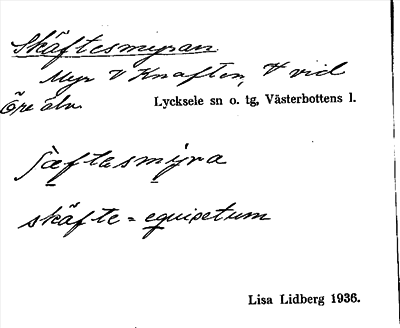 Skäftesmyran
Myr V Knaften, V vid
Öre älv.
Lycksele sn o. tg, Västerbottens l.
ʃæftesmýra
skäfte = equisetum
Lisa Lidberg 1936.